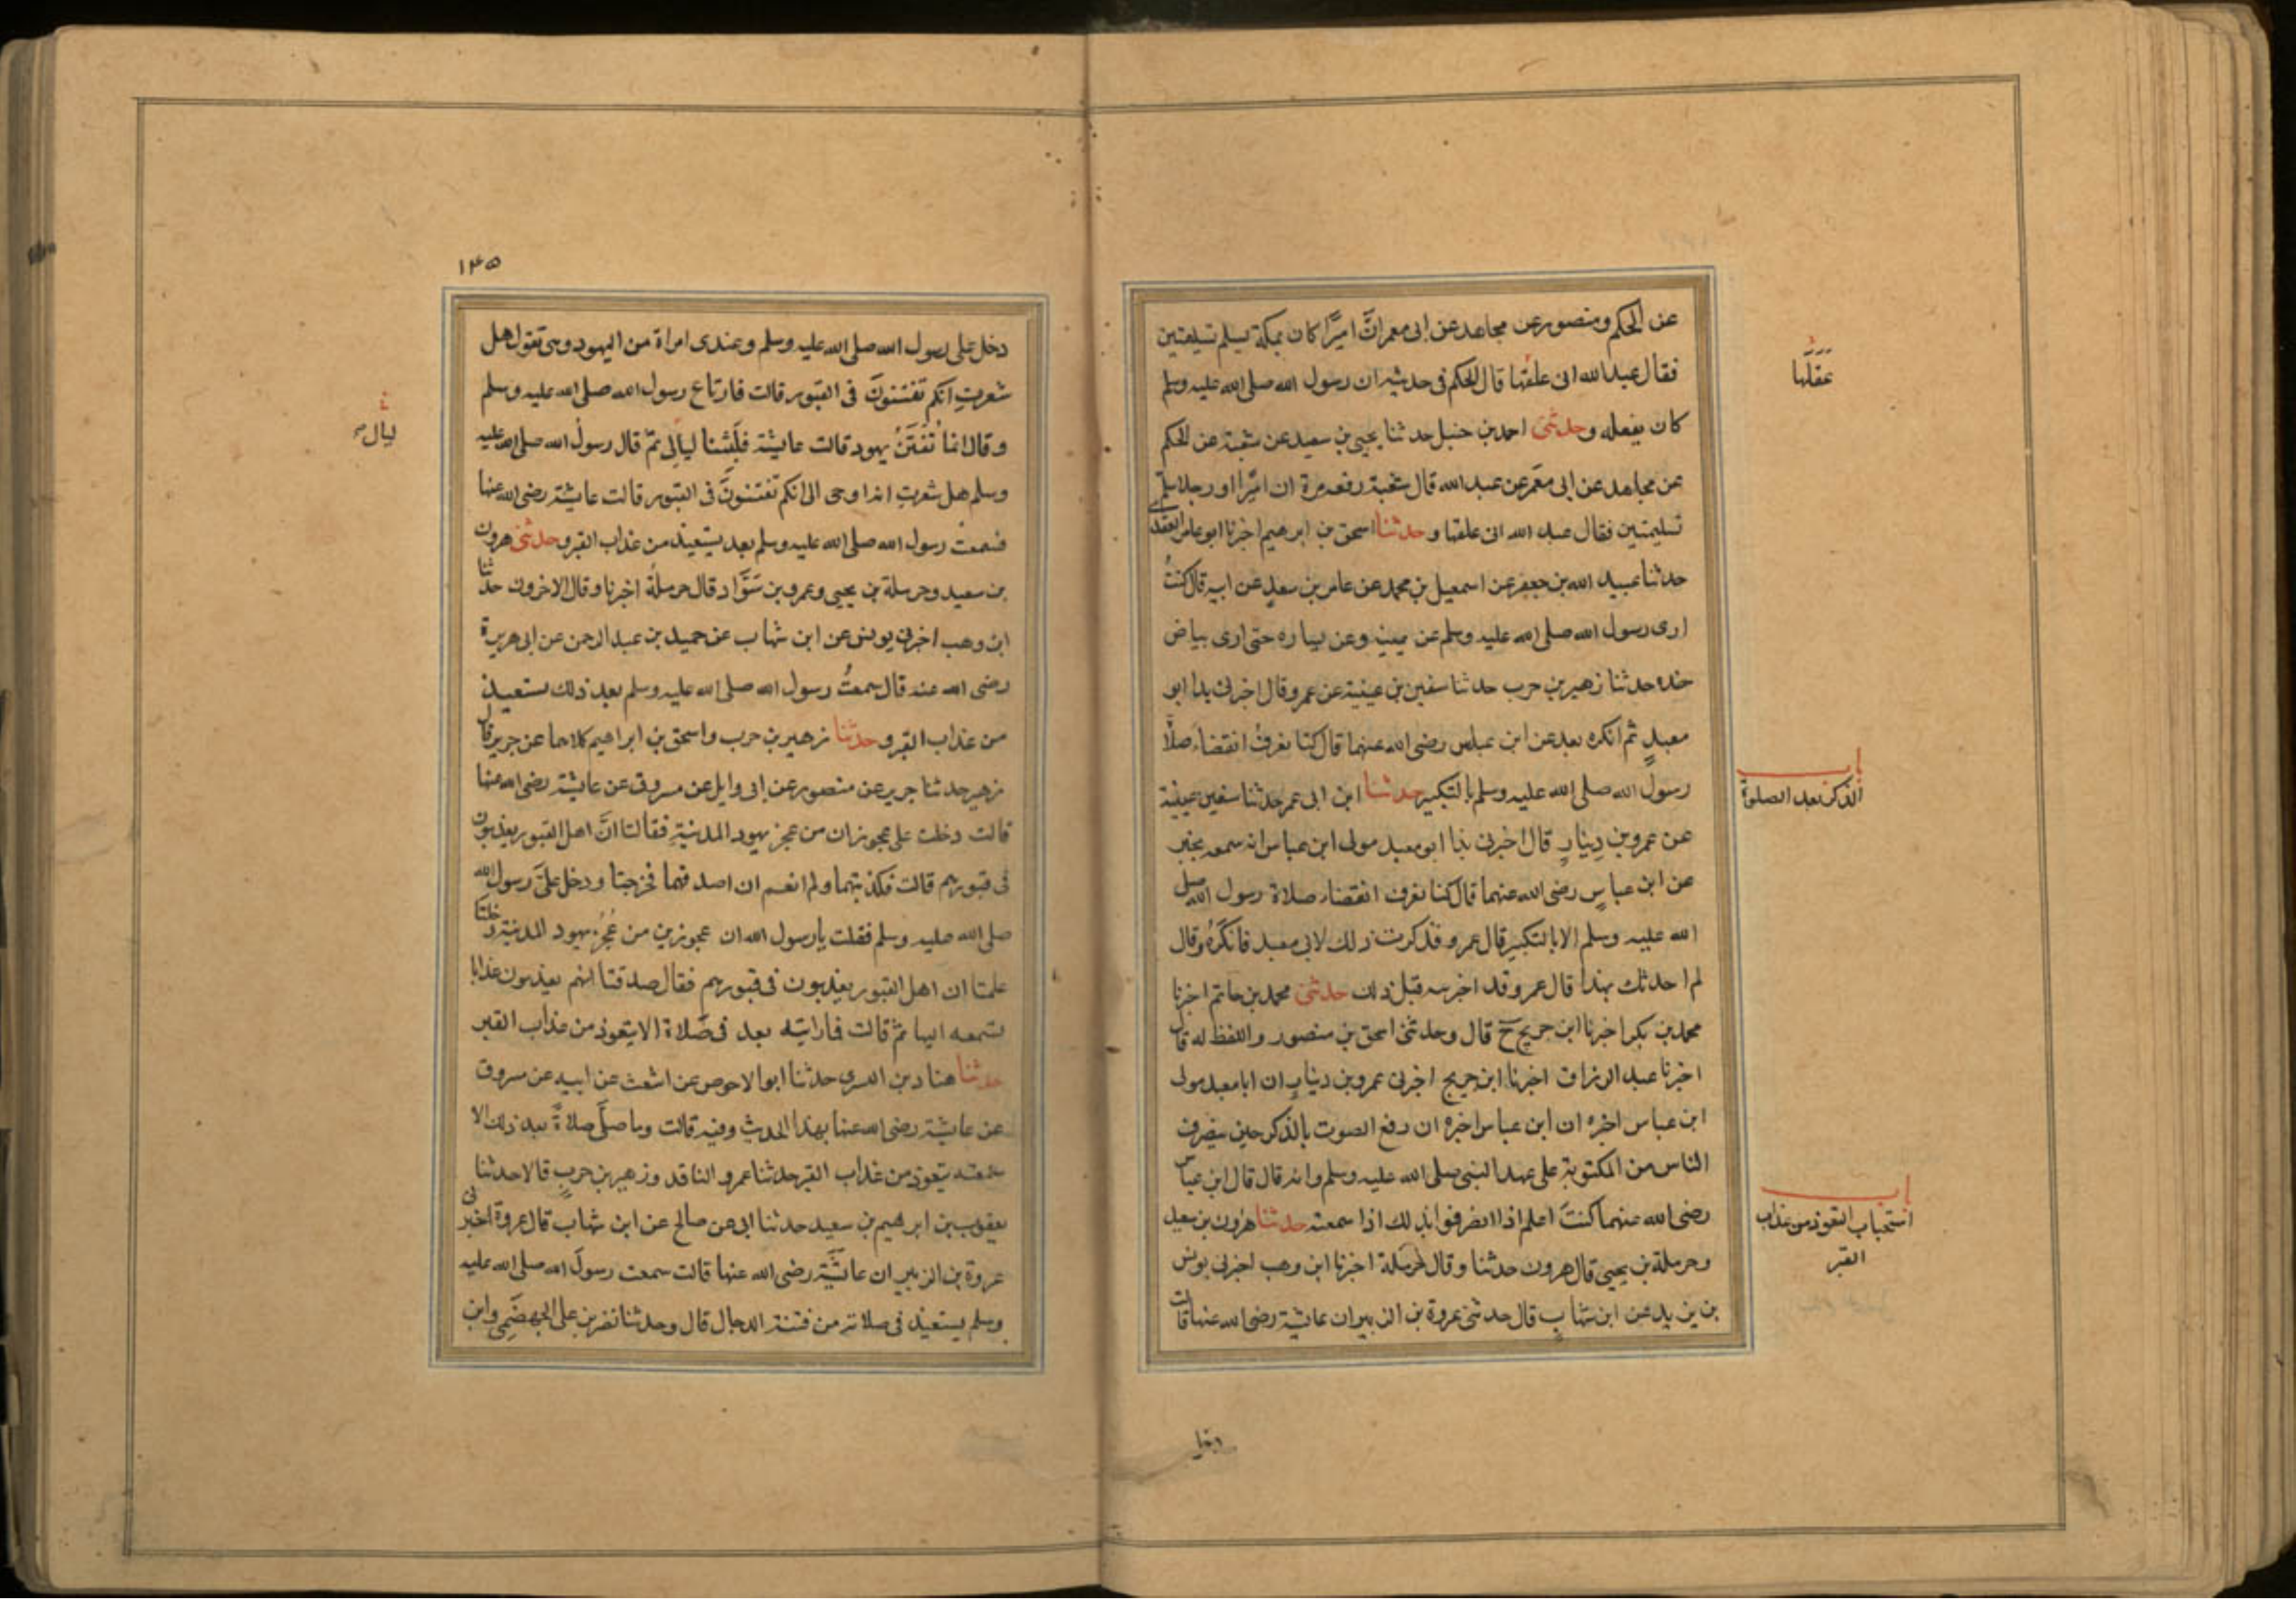 عن الحكم ومنصور عن مجاهد عن ابى معمر انّ اميرًا كان بمكة يسلم تسليمتين
فقال عبد الله انى علقها قال الحكم فى حديثه ان رسول الله صلى الله عليه وسلم
كان يفعله وحدثنى احمد بن حنبل حدثنا يحيى بن سعيد عن شعبة عن الحكم
عن مجاهد عن ابى معمر عن عبد الله قال شعبة رفعه مرة ان اميرًا او رجلا سلم
تسليمتين فقال عبد الله انى علقها وحدثنا اسحق بن ابرهيم اخبرنا ابو عامر العقدى
حدثنا عبد الله بن جعفر عن اسمعيل بن محمد عن عامر بن سعدٍ عن ابيه قال كنتُ
ارى رسول الله صلى الله عليه وسلم عن يمينه وعن يساره حتى ارى بياض
خده حدثنا زهير بن حرب حدثنا سفين بن عيينة عن عمرو قال اخبرنى بذا ابو
معبدٍ ثم انكره بعد عن ابن عباس رضى الله عنهما قال كنا نعرف انقضاء صلاة
رسول الله صلى الله عليه وسلم بالتكبير حدثنا ابن ابى عمر حدثنا سفين عيينة
عن عمرو بن دينارٍ قال اخبرنى بذا ابو معبد مولى ابن عباس انه سمعه يخبر
عن ابن عباسٍ رضى الله عنهما قال كنا نعرف انقضاء صلاة رسول الله صلى
الله عليه وسلم الا بالتكبير قال عمرو فذكرت ذلك لابى معبد فانكرهُ وقال
لم احدثك بهذا قال عمرو قد اخبرنيه قبل ذلك حدثنى محمد بن حاتم اخبرنا
محمد بن بكر اخبرنا ابن جريج ح قال وحدثنى اسحق بن منصور واللفظ له قال
اخبرنا عبد الرزاق اخبرنا ابن جريج اخبرنى عمرو بن دينارٍ ان ابا معبد مولى
ابن عباس اخبره ان ابن عباس اخبره ان رفع الصوت بالذكر حين ينصرف
الناس من المكتوبة على عهد النبى صلى الله عليه وسلم وانه قال قال ابن عباس
رضى الله عنهما كنت اعلم اذا انصرفوا بذلك اذا سمعته حدثنا هرون بن سعيد
وحرملة بن يحيى قال هرون حدثنا وقال حرملة اخبرنا ابن وهب اخبرنى يونس
بن يزيد عن ابن شهابٍ قال حدثنى عروة بن الزبير ان عايشة رضى الله عنها قالت
عقلها
باب
الذكر بعد الصلوة
باب
استحباب التعوذ من عذاب
القبر
دخل
١٤٥
دخل على رسول الله صلى الله عليه وسلم وعندى امراة من اليهود وهى تقول هل
شعرتِ انكم تفتنونَ فى القبور قالت فارتاع رسول الله صلى الله عليه وسلم
وقال انما تُفتَنُ يهود قالت عايشة فلبثنا ليالى ثم قال رسول الله صلى الله عليه
وسلم هل شعرتِ انه اوحى الى انكم تفتنونَ فى القبور قالت عايشة رضى الله عنها
فسمعت رسول الله صلى الله عليه وسلم بعد يستعيذ من عذاب القبر وحدثنى هرون
بن سعيد وحرملة بن يحيى وعمرو بن سَوَّاد قال حرملةُ اخبرنا وقال الاخرون حدثنا
ابن وهب اخبرنى يونس عن ابن شهاب عن حميد بن عبد الرحمن عن ابى هريرة
رضى الله عنه قال سمعتُ رسول الله صلى الله عليه وسلم بعد ذلك يستعيذ
من عذاب القبر وحدثنا زهير بن حرب واسحق بن ابراهيم كلاهما عن جرير قال
زهير حدثنا جرير عن منصور عن ابى وايل عن مسروق عن عايشة رضى الله عنها
قالت دخلت على عجوزان من عجز يهود المدينةِ فقالتا انَّ اهل القبور يعذبون
فى قبورهم قالت فكذبتهما ولم انعم ان اصدقهما فخرجتا ودخل علىَّ رسول الله
صلى الله عليه وسلم فقلت يا رسول الله ان عجوزين من عُجُز يهود المدينة دخلتا
علىّ فزعمتا ان اهل القبور يعذبون فى قبورهم فقال صدقتا انهم يعذبون عذابا
تسمعه البهايم ثم قالت فما رايته بعد فى صلاة الا يتعوذ من عذاب القبر
حدثنا هناد بن السرى حدثنا ابو الاحوص عن اشعث عن ابيه عن مسروق
عن عايشة رضى الله عنها بهذا الحديث وفيه قالت وما صلّى صلاةً بعد ذلك الا
سمعته يتعوذ من عذاب القبر حدثنا عمرو الناقد وزهير بن حربٍ قالا حدثنا
يعقوب بن ابرهيم بن سعيد حدثنا ابى عن صالح عن ابن شهاب قال عروة اخبرنى
عروة بن الزبير ان عايشَةَ رضى الله عنها قالت سمعت رسولَ الله صلى الله عليه
وسلم يستعيذ فى صلاته من فتنة الدجال قال وحدثنا نصر بن على الجهضَمِى وابن
ليال